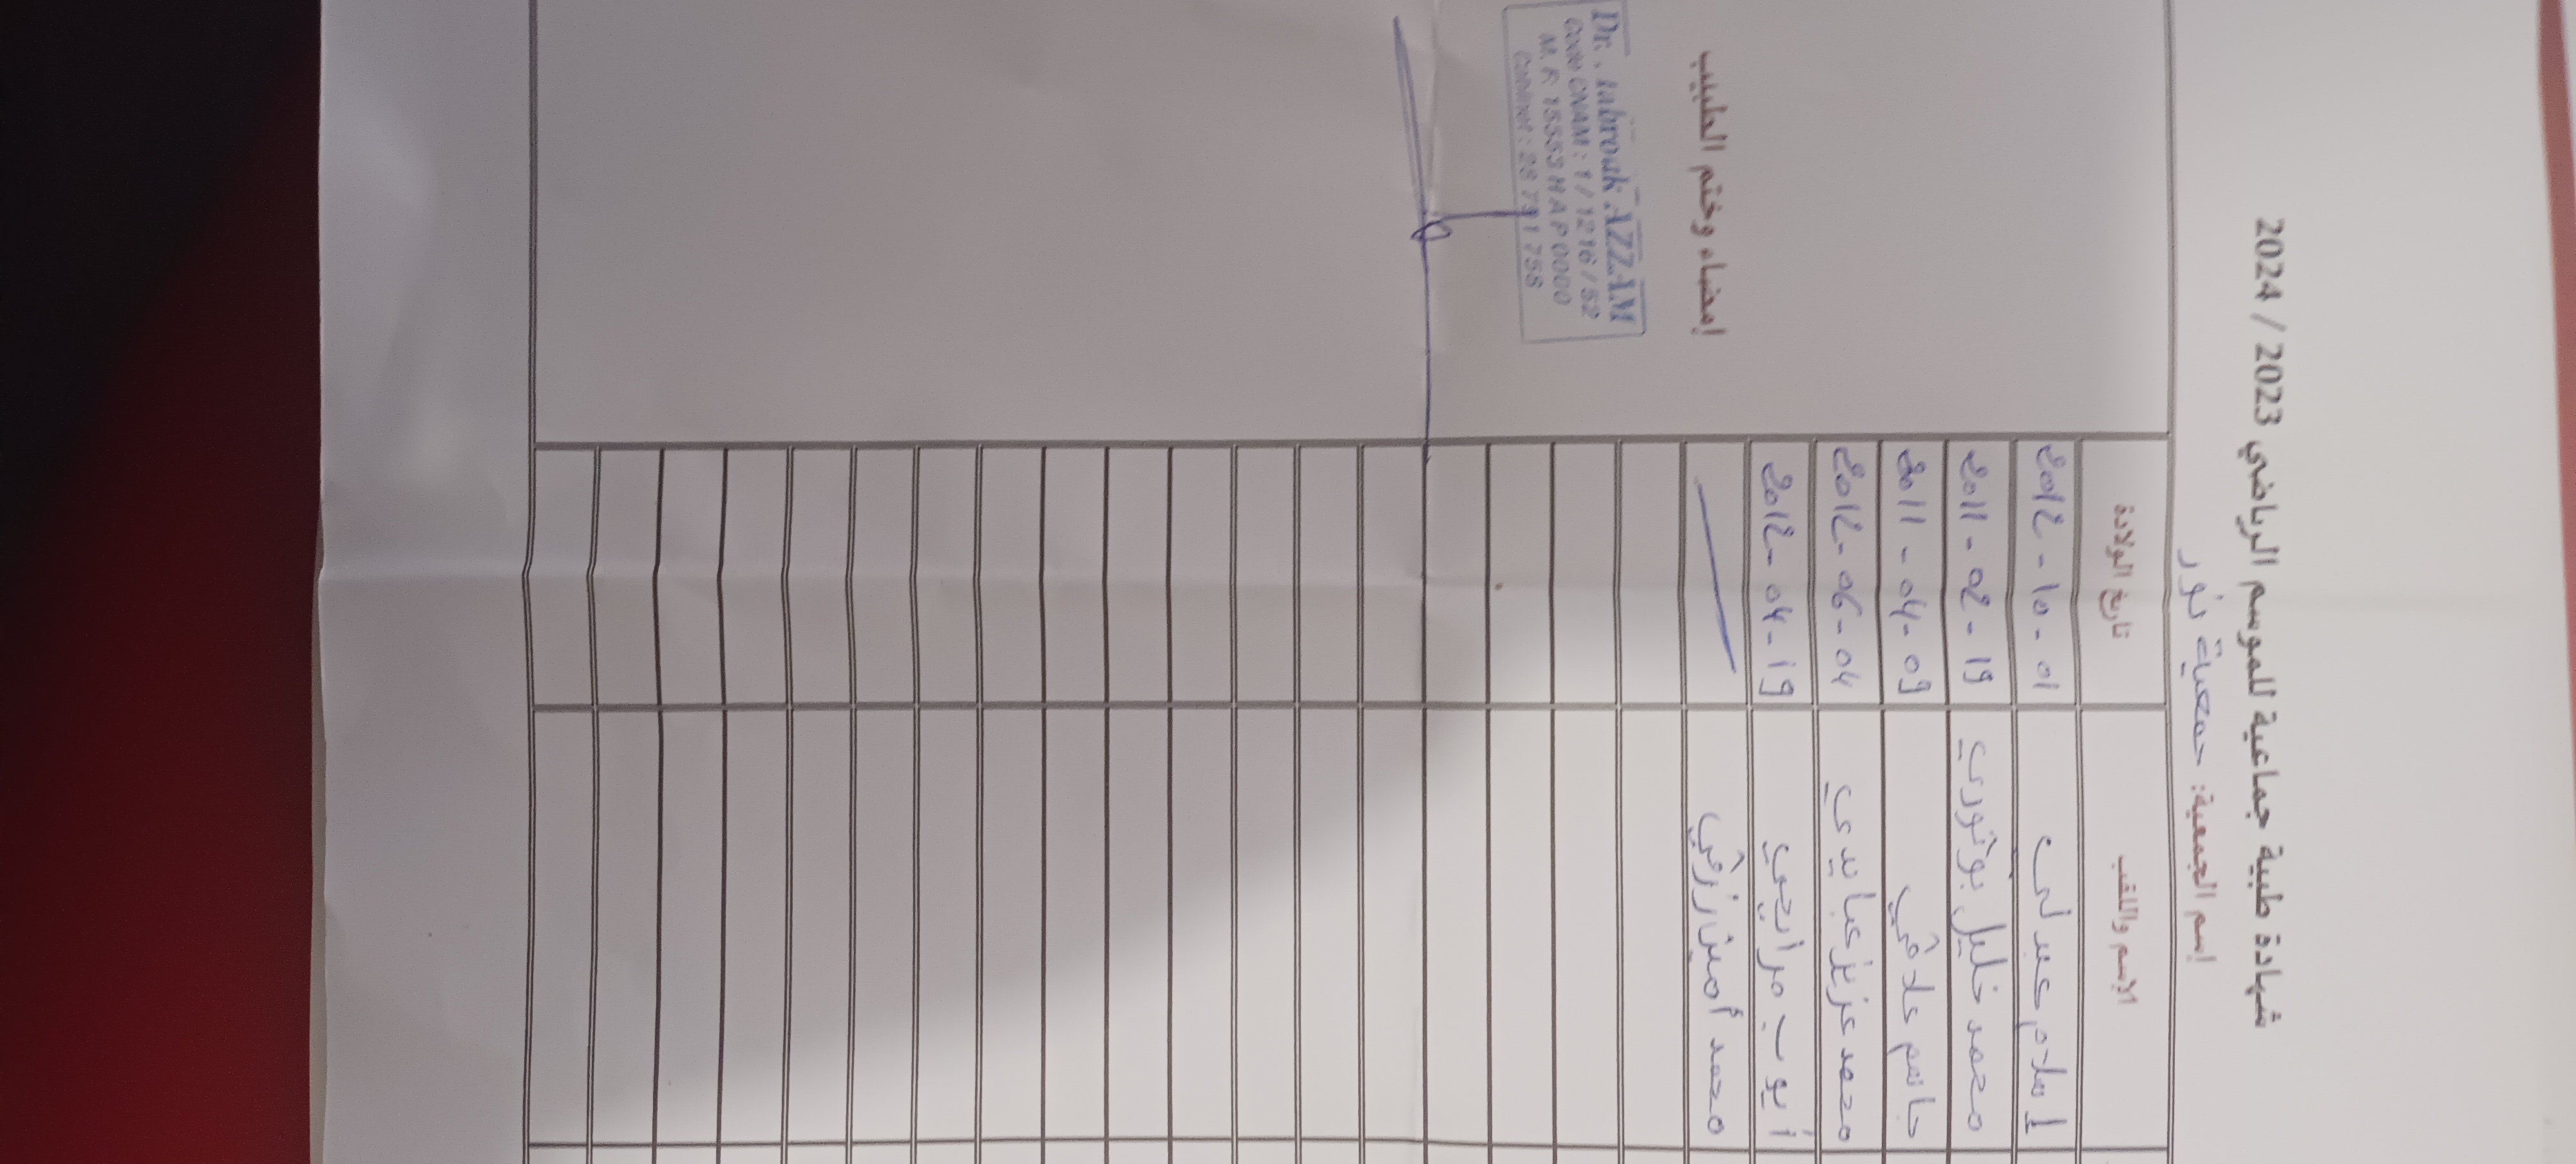 شهادة طبية جماعية للموسم الرياضي 2023 / 2024
إسم الجمعية: جمعية نور
الإسم واللقب تاريخ الولادة
إسلام عبدلي 2012 - 10 - 01
محمد خليل بوثوري 2011 - 02 - 19
جاسم علاقي 2011 - 04 - 09
محمد عزيز عبايدي 2012 - 06 - 04
أيوب مرايحي 2012 - 04 - 19
محمد أمين زرقي
إمضاء وختم الطبيب
Dr. Mabrouk AZZAM
Code CNAM : 1 / 12216 / 52
M. F. 15553 H A P 0000
Cabinet : 28 791 756